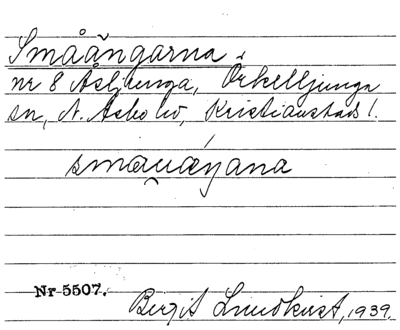 Småängarna i
nr 8 Åsljunga, Örkelljunga
sn, N. Åsbo hd, Kristianstads l.
Nr 5507. Birgit Lindkvist, 1939.